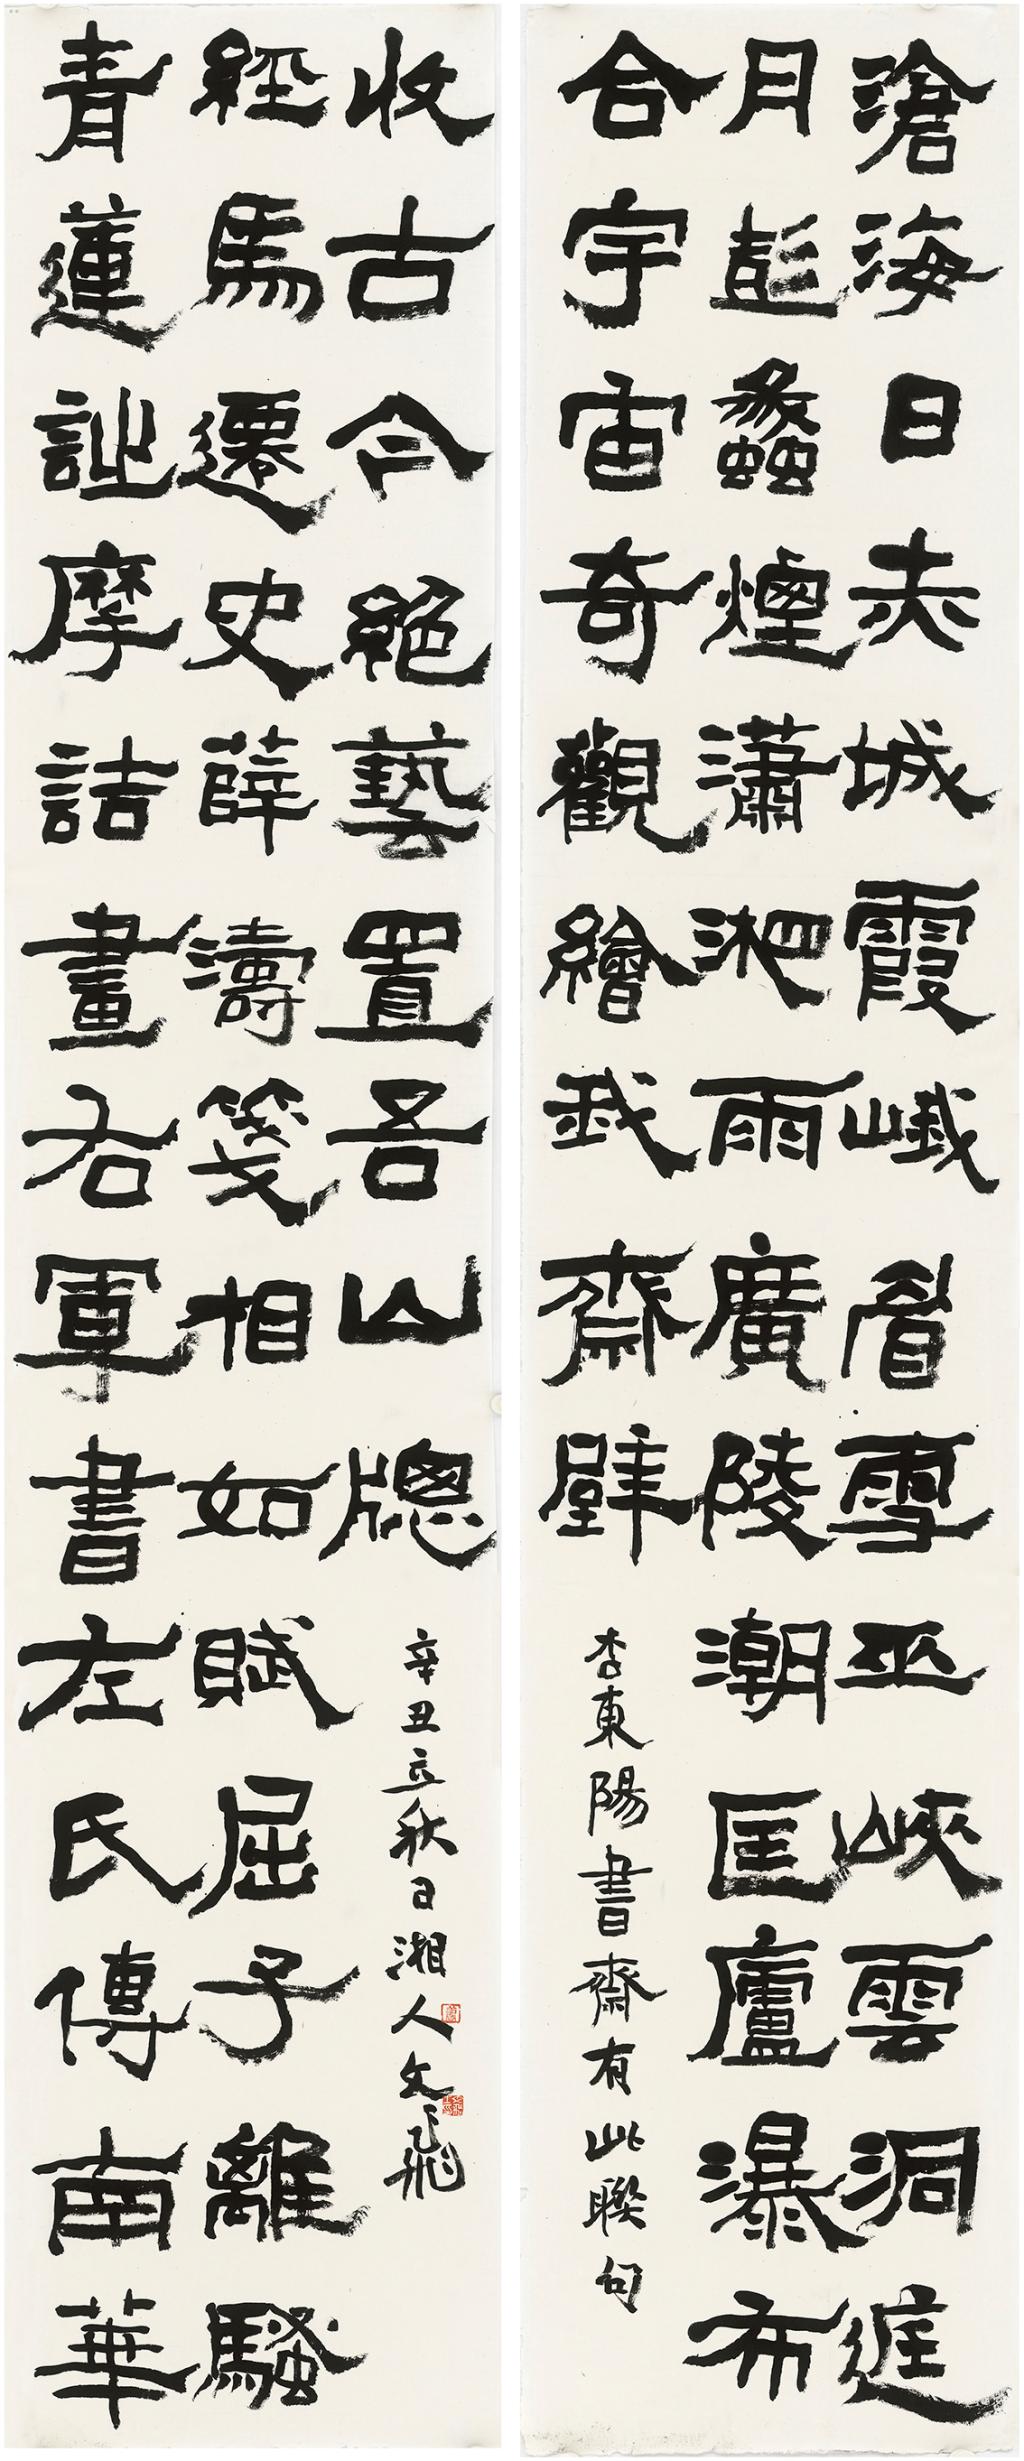 滄海日赤城霞峨眉雪巫峽雲洞庭
月彭蠡煙瀟湘雨廣陵潮匡廬瀑布
合宇宙奇觀繪我齋壁
李東陽書齋有此聯句
青蓮詩摩詰畫右軍書左氏傳南華
經馬遷史薛濤箋相如賦屈子離騷
收古今絕藝置吾山牕
辛丑立秋日湘人文飛